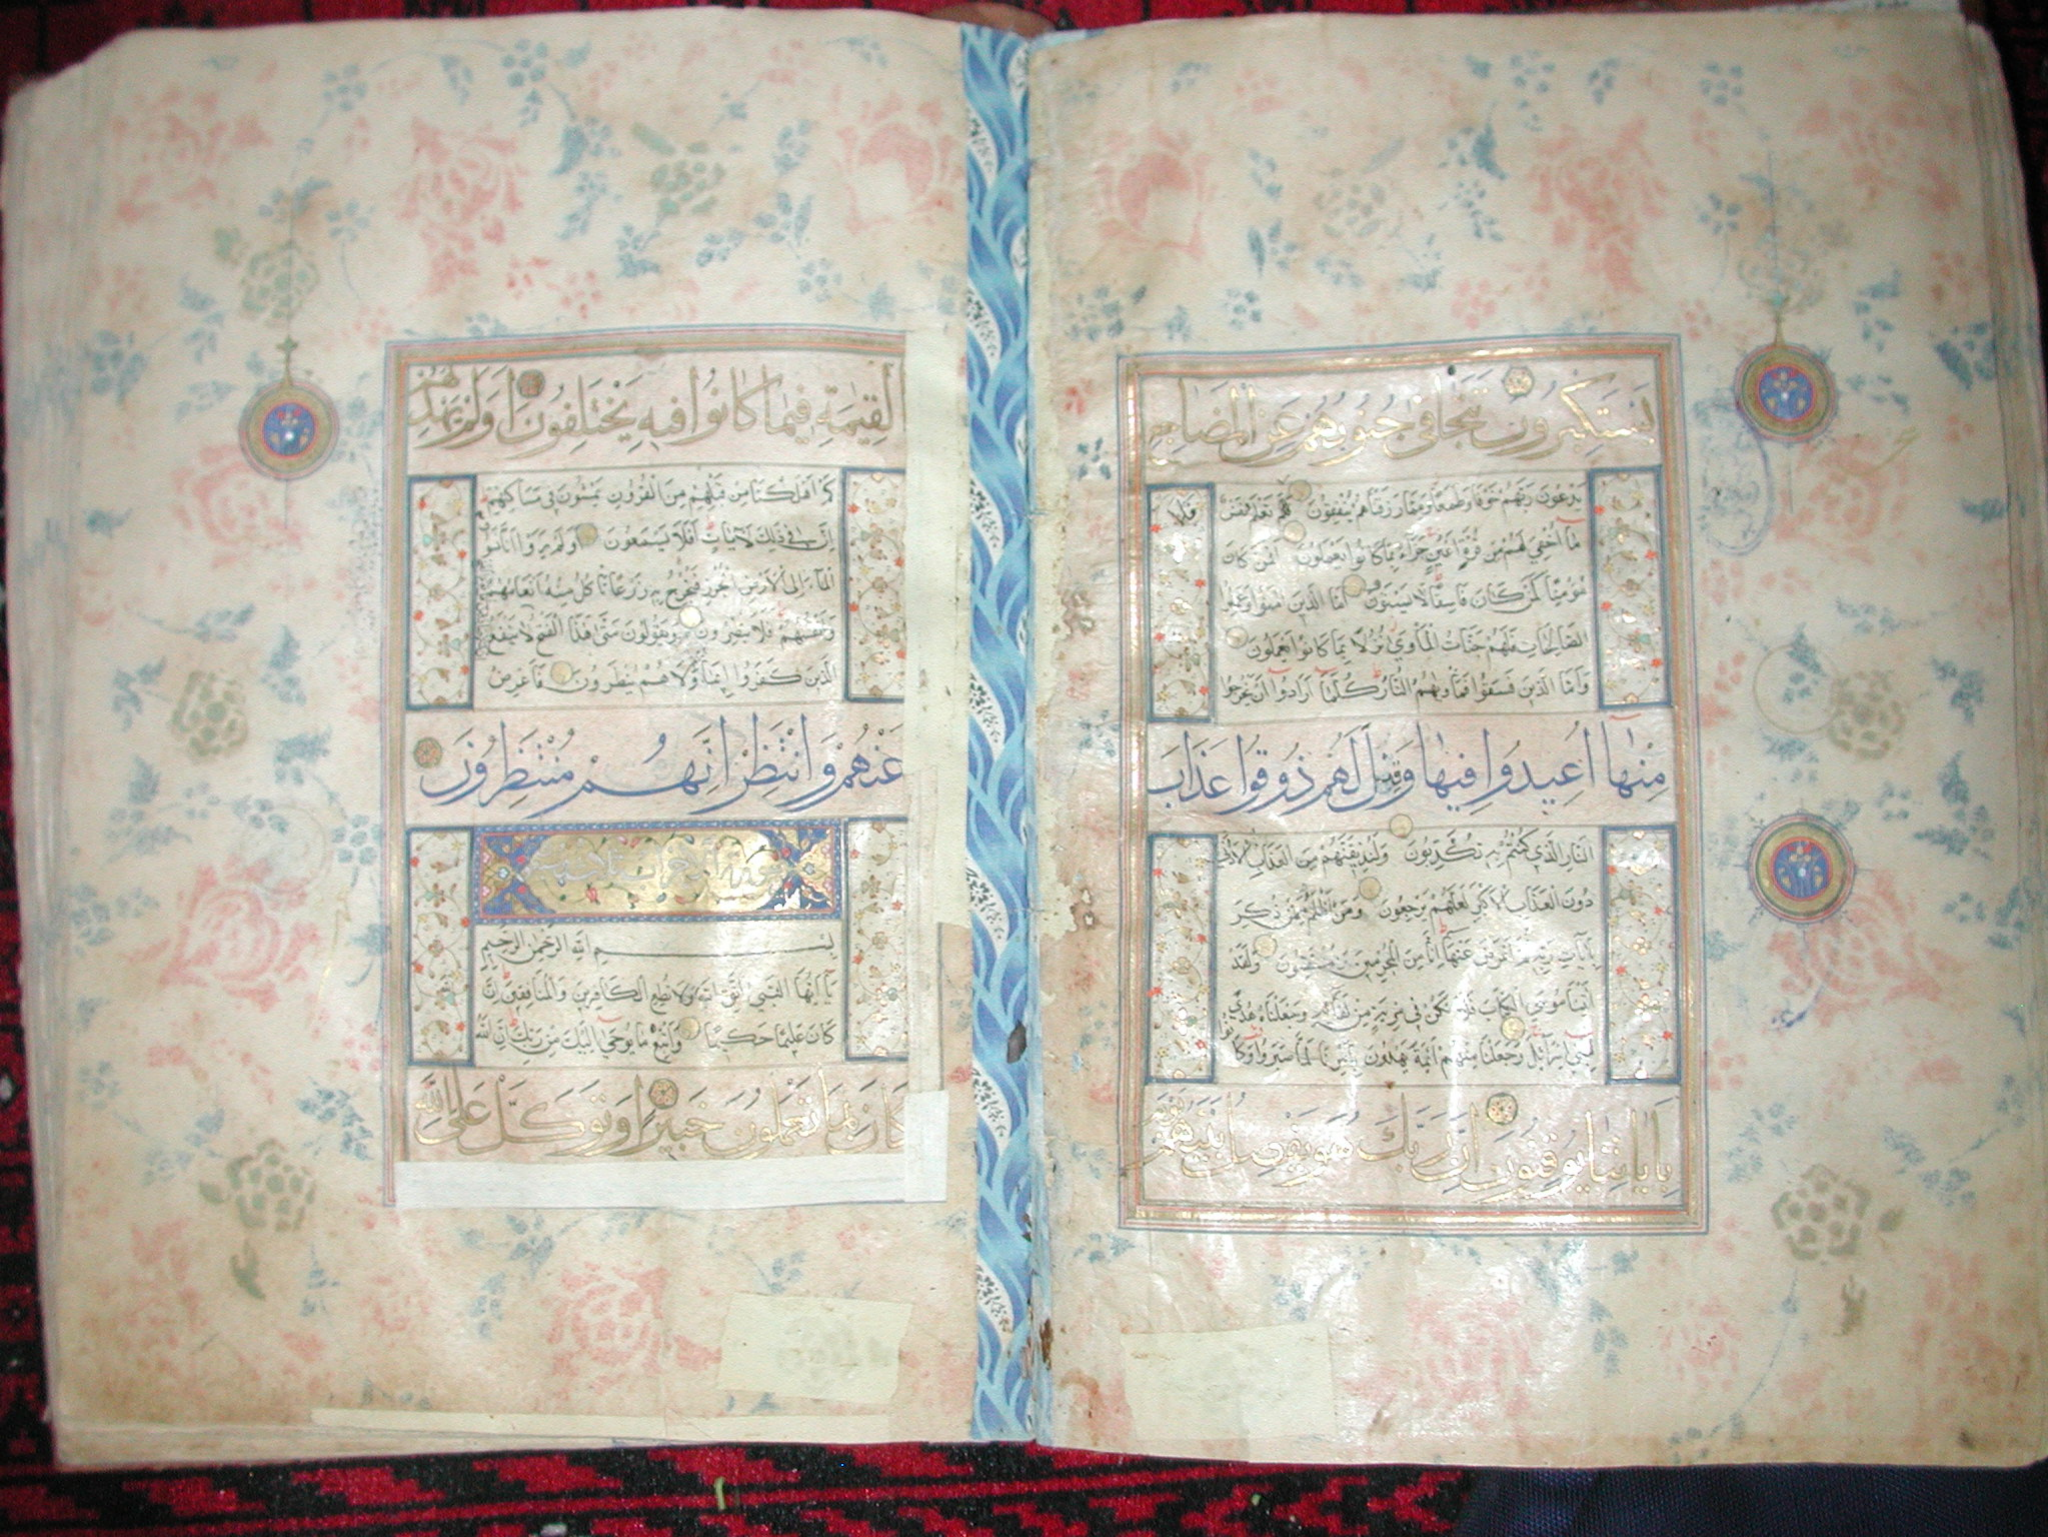 يَسْتَكْبِرُونَ تَتَجَافَىٰ جُنُوبُهُمْ عَنِ الْمَضَاجِعِ
يَدْعُونَ رَبَّهُمْ خَوْفًا وَطَمَعًا وَمِمَّا رَزَقْنَاهُمْ يُنْفِقُونَ فَلَا تَعْلَمُ نَفْسٌ
مَا أُخْفِيَ لَهُمْ مِنْ قُرَّةِ أَعْيُنٍ جَزَاءً بِمَا كَانُوا يَعْمَلُونَ أَفَمَنْ كَانَ
مُؤْمِنًا كَمَنْ كَانَ فَاسِقًا لَا يَسْتَوُونَ أَمَّا الَّذِينَ آمَنُوا وَعَمِلُوا
الصَّالِحَاتِ فَلَهُمْ جَنَّاتُ الْمَأْوَىٰ نُزُلًا بِمَا كَانُوا يَعْمَلُونَ
وَأَمَّا الَّذِينَ فَسَقُوا فَمَأْوٰيهُمُ النَّارُ كُلَّمَا أَرَادُوا أَنْ يَخْرُجُوا
مِنْهَا أُعِيدُوا فِيهَا وَقِيلَ لَهُمْ ذُوقُوا عَذَابَ
النَّارِ الَّذِي كُنْتُمْ بِهِ تُكَذِّبُونَ وَلَنُذِيقَنَّهُمْ مِنَ الْعَذَابِ الْأَدْنَىٰ
دُونَ الْعَذَابِ الْأَكْبَرِ لَعَلَّهُمْ يَرْجِعُونَ وَمَنْ أَظْلَمُ مِمَّنْ ذُكِّرَ
بِآيَاتِ رَبِّهِ ثُمَّ أَعْرَضَ عَنْهَا إِنَّا مِنَ الْمُجْرِمِينَ مُنْتَقِمُونَ وَلَقَدْ
آتَيْنَا مُوسَى الْكِتَابَ فَلَا تَكُنْ فِي مِرْيَةٍ مِنْ لِقَائِهِ وَجَعَلْنَاهُ هُدًى
لِبَنِي إِسْرَائِيلَ وَجَعَلْنَا مِنْهُمْ أَئِمَّةً يَهْدُونَ بِأَمْرِنَا لَمَّا صَبَرُوا وَكَانُوا
بِآيَاتِنَا يُوقِنُونَ إِنَّ رَبَّكَ هُوَ يَفْصِلُ بَيْنَهُمْ يَوْمَ
الْقِيٰمَةِ فِيمَا كَانُوا فِيهِ يَخْتَلِفُونَ أَوَلَمْ يَهْدِ لَهُمْ
كَمْ أَهْلَكْنَا مِنْ قَبْلِهِمْ مِنَ الْقُرُونِ يَمْشُونَ فِي مَسَاكِنِهِمْ
إِنَّ فِي ذَٰلِكَ لَآيَاتٍ أَفَلَا يَسْمَعُونَ أَوَلَمْ يَرَوْا أَنَّا نَسُوقُ
الْمَاءَ إِلَى الْأَرْضِ الْجُرُزِ فَنُخْرِجُ بِهِ زَرْعًا تَأْكُلُ مِنْهُ أَنْعَامُهُمْ
وَأَنْفُسُهُمْ أَفَلَا يُبْصِرُونَ وَيَقُولُونَ مَتَىٰ هَٰذَا الْفَتْحُ لَا يَنْفَعُ
الَّذِينَ كَفَرُوا إِيمَانُهُمْ وَلَا هُمْ يُنْظَرُونَ فَأَعْرِضْ
عَنْهُمْ وَانْتَظِرْ إِنَّهُمْ مُنْتَظِرُونَ
بِسْمِ اللَّهِ الرَّحْمٰنِ الرَّحِيمِ
يَا أَيُّهَا النَّبِيُّ اتَّقِ اللَّهَ وَلَا تُطِعِ الْكَافِرِينَ وَالْمُنَافِقِينَ إِنَّ اللَّهَ
كَانَ عَلِيمًا حَكِيمًا وَاتَّبِعْ مَا يُوحَىٰ إِلَيْكَ مِنْ رَبِّكَ إِنَّ اللَّهَ
كَانَ بِمَا تَعْمَلُونَ خَبِيرًا وَتَوَكَّلْ عَلَى اللَّهِ